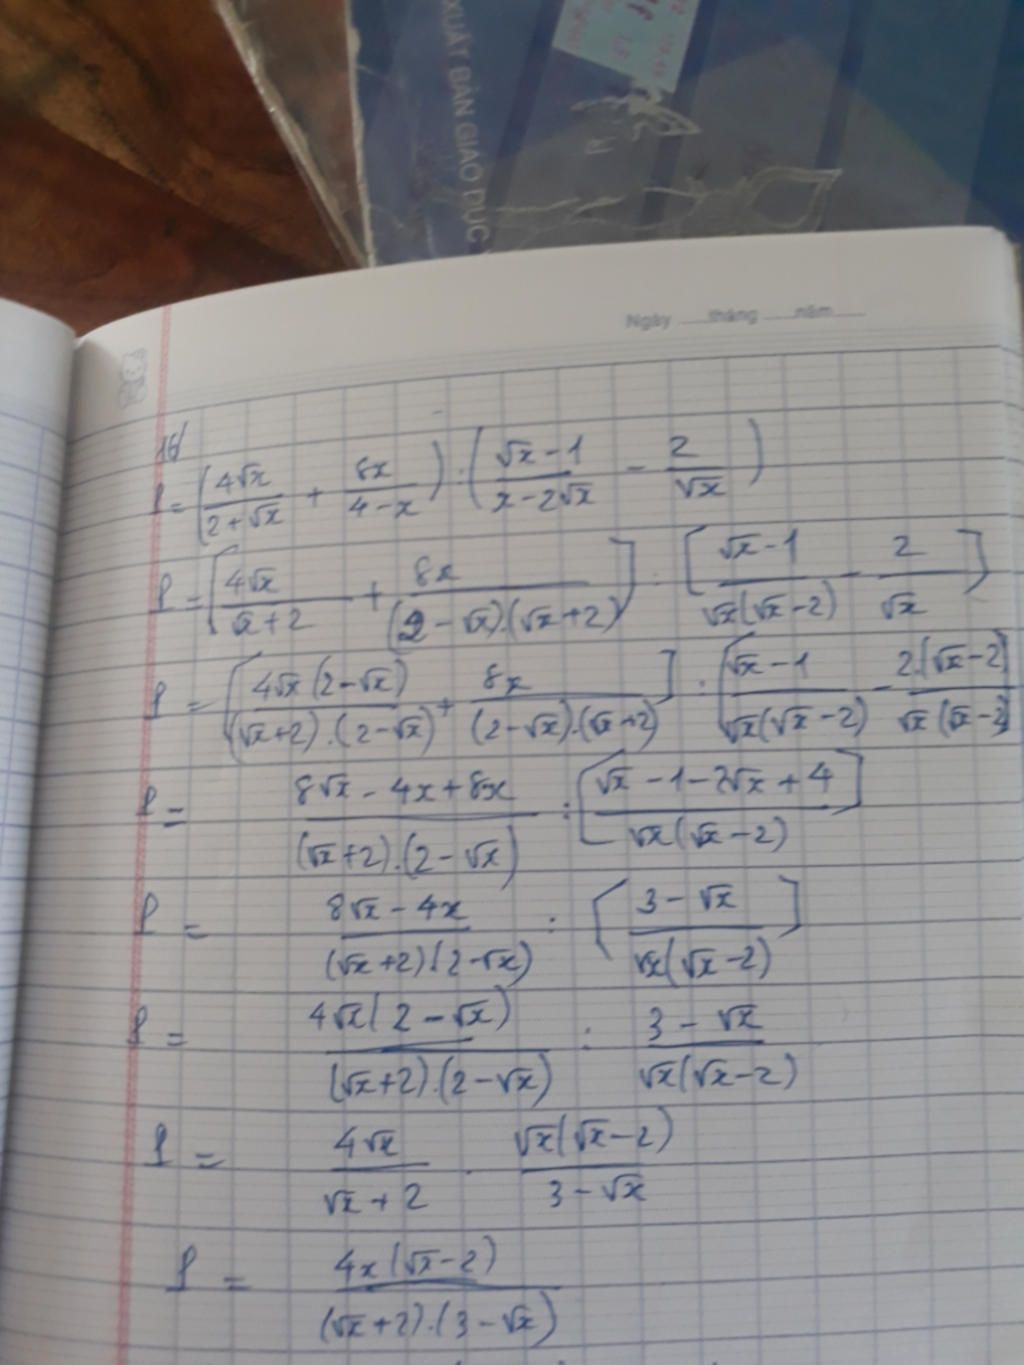 XUẤT BẢN GIÁO DỤC
Ngày ......tháng ......năm......
16/
P = (4√x/(2+√x) + 8x/(4-x)) : ((√x-1)/(x-2√x) - 2/√x)
P = [4√x/(√x+2) + 8x/((2-√x).(√x+2))] : [(√x-1)/(√x(√x-2)) - 2/√x]
P = [4√x(2-√x)/((√x+2).(2-√x)) + 8x/((2-√x).(√x+2))] : [(√x-1)/(√x(√x-2)) - 2.(√x-2)/(√x(√x-2))]
P = (8√x-4x+8x)/((√x+2).(2-√x)) : [(√x-1-2√x+4)/(√x(√x-2))]
P = (8√x-4x)/((√x+2)(2-√x)) : [(3-√x)/(√x(√x-2))]
P = 4√x(2-√x)/((√x+2).(2-√x)) : (3-√x)/(√x(√x-2))
P = 4√x/(√x+2) . √x(√x-2)/(3-√x)
P = 4x(√x-2)/((√x+2).(3-√x))